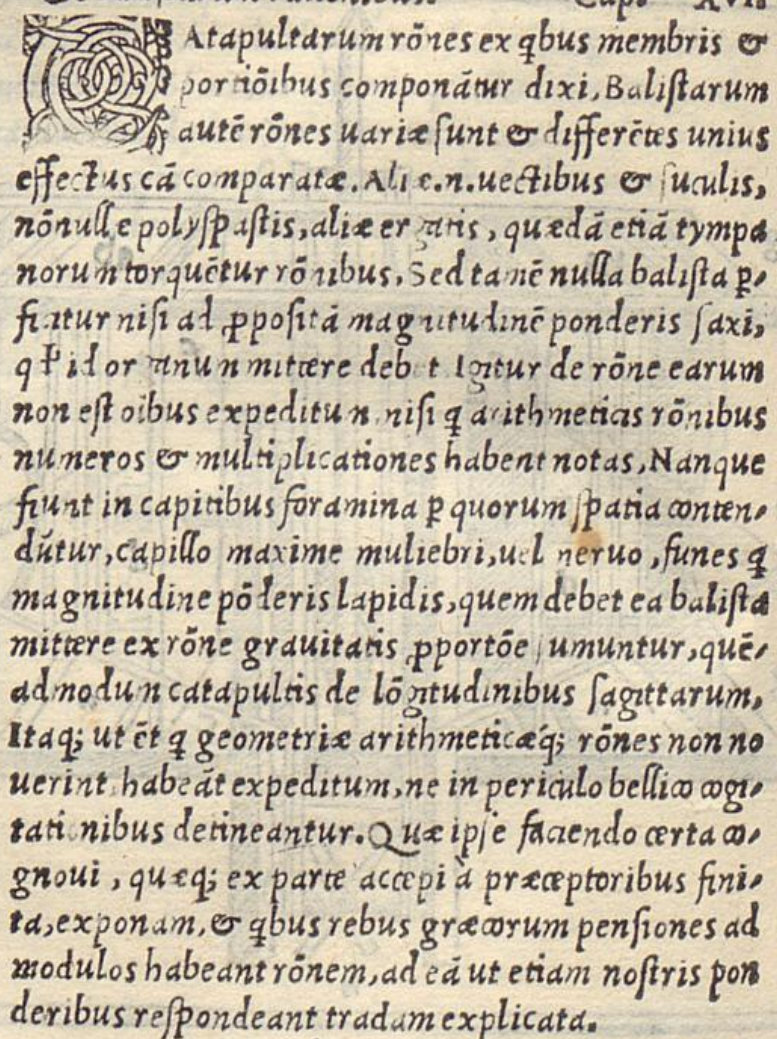 Cap. XVII
CAtapultarum rōnes ex qbus membris &
portiōibus componātur dixi, Balistarum
autē rōnes uariæ sunt & differētes unius
effectus cā comparatæ. Aliæ.n.uectibus & suculis,
nōnullæ polyspastis, aliæ ergatis, quædā etiā tympa
norum torquētur rōnibus. Sed tamē nulla balista ꝑ-
ficitur nisi ad ꝓpositā magnitudinē ponderis saxi,
qđ id organum mittere debet Igitur de rōne earum
non est oibus expeditum, nisi ꝗ arithmeticis rōnibus
numeros & multiplicationes habent notas, Nanque
fiunt in capitibus foramina ꝑ quorum spatia conten-
dūtur, capillo maxime muliebri, uel neruo, funes ꝗ
magnitudine pōderis lapidis, quem debet ea balista
mittere ex rōne grauitatis ꝓportōe sumuntur, quē-
admodum catapultis de lōgitudinibus sagittarum,
Itaq; ut ēt ꝗ geometriæ arithmeticæq́; rōnes non no
uerint, habeāt expeditum, ne in periculo bellico cogi-
tationibus detineantur. Quæ ipse faciendo certa co-
gnoui, quæq; ex parte accepi à præceptoribus fini-
ta, exponam, & qbus rebus græcorum pensiones ad
modulos habeant rōnem, ad eā ut etiam nostris pon
deribus respondeant tradam explicata.